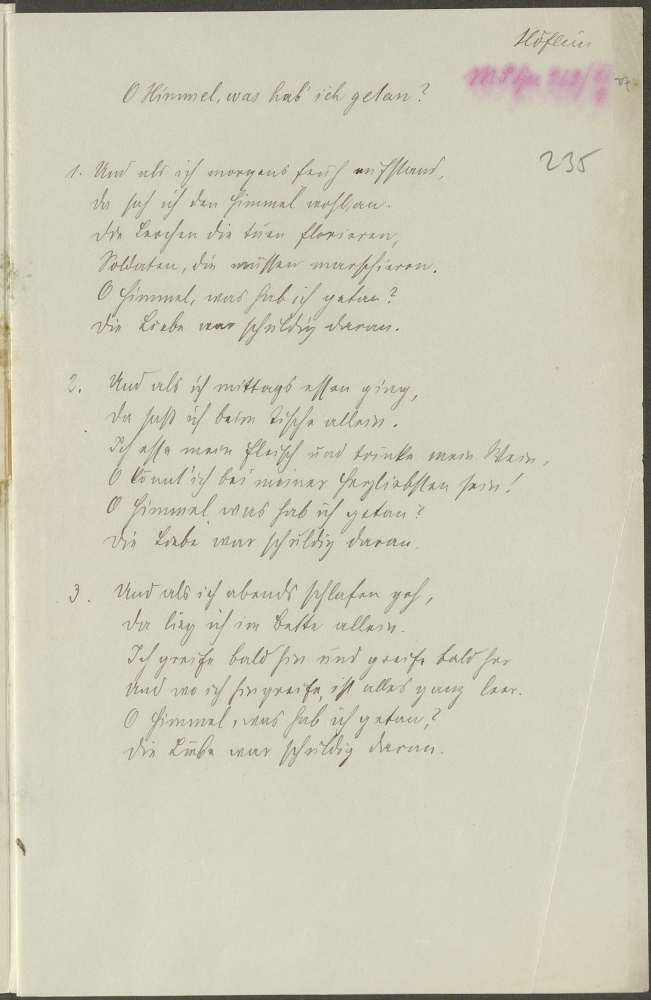 Höflein
O Himmel, was hab' ich getan?
235
1. Und als ich morgens früh aufstand,
da sah ich den Himmel wohl an.
Die Lerchen die tuen florieren,
Soldaten, die müssen marschieren.
O Himmel, was hab ich getan?
Die Liebe war schuldig daran.
2. Und als ich mittags essen ging,
Da saß ich beim Tische allein.
Ich esse mein Fleisch und trinke mein Wein,
O könnt' ich bei meiner Herzliebsten sein!
O Himmel was hab ich getan?
Die Liebe war schuldig daran.
3. Und als ich abends schlafen geh,
Da lieg ich im Bette allein.
Ich greife bald hin und greife bald her
Und wo ich hingreife, ist alles ganz leer.
O Himmel, was hab ich getan?
Die Liebe war schuldig daran.